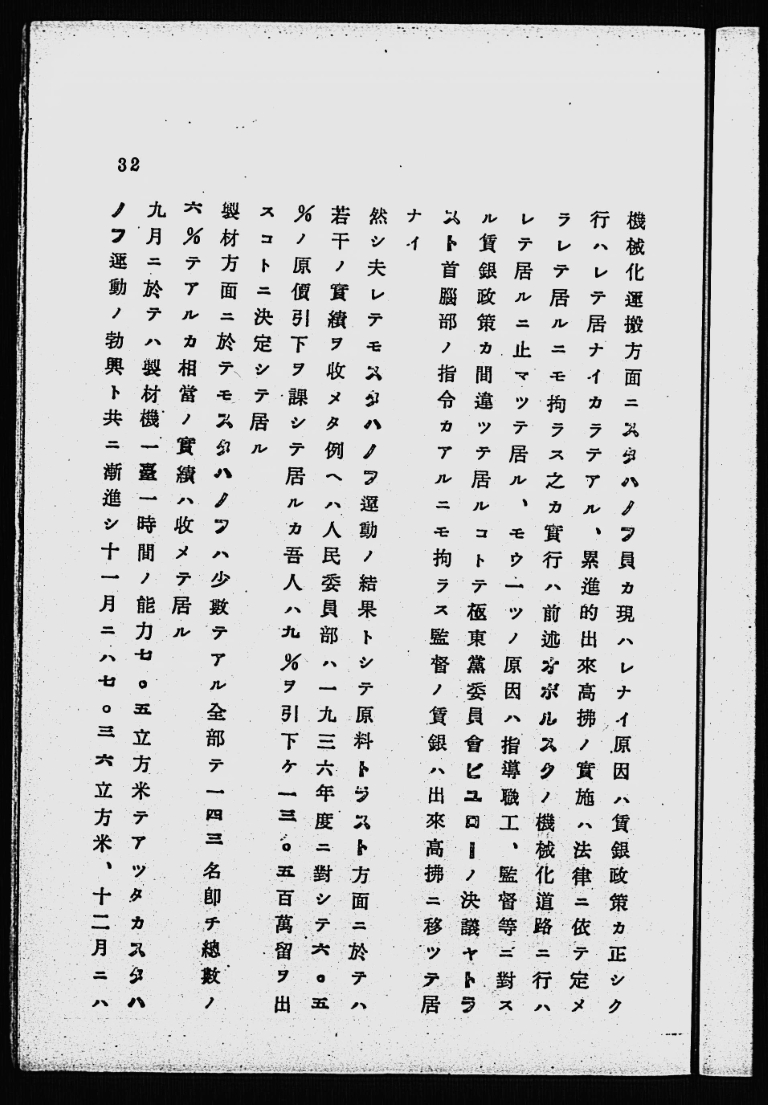 機械化運搬方面ニスタハノフ員カ現ハレナイ原因ハ賃銀政策カ正シク
行ハレテ居ナイカラテアル、累進的出來高拂ノ實施ハ法律ニ依テ定メ
ラレテ居ルニモ拘ラス之カ實行ハ前述オボルスクノ機械化道路ニ行ハ
レテ居ルニ止マツテ居ル、モウ一ツノ原因ハ指導職工、監督等ニ對ス
ル賃銀政策カ間違ツテ居ルコトテ極東黨委員會ビユローノ決議ヤトラ
スト首腦部ノ指令カアルニモ拘ラス監督ノ賃銀ハ出來高拂ニ移ツテ居
ナイ
然シ夫レテモスタハノフ運動ノ結果トシテ原料トラスト方面ニ於テハ
若干ノ實績ヲ收メタ例ヘハ人民委員部ハ一九三六年度ニ對シテ六。五
%ノ原價引下ヲ課シテ居ルカ吾人ハ九%ヲ引下ケ一三。五百萬留ヲ出
スコトニ決定シテ居ル
製材方面ニ於テモスタハノフハ少數テアル全部テ一四三名卽チ總數ノ
六%テアルカ相當ノ實績ハ收メテ居ル
九月ニ於テハ製材機一臺一時間ノ能力七。五立方米テアツタカスタハ
ノフ運動ノ勃興ト共ニ漸進シ十一月ニハ七。三六立方米、十二月ニハ
32